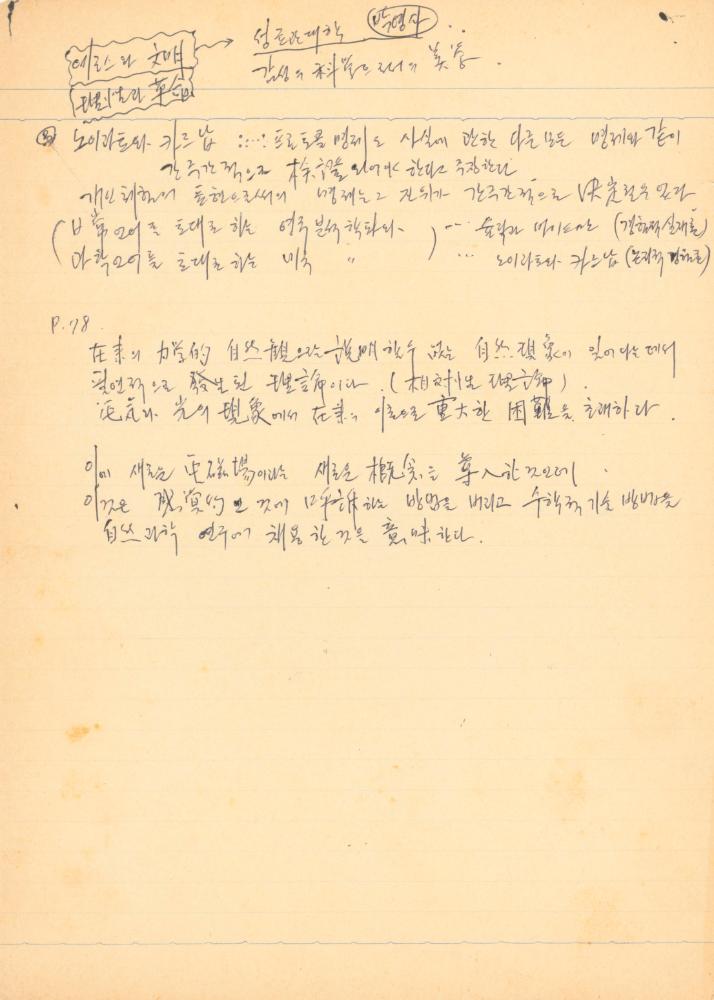 에로스와 文明
理性과 革命
→ 성균관대학 박영사
감성의 科學으로서의 美學.
노이라트와 카르납 :…: 프로토콜 명제도 사실에 관한 다른 모든 명제와 같이
간주관적으로 檢證될 있어야 한다고 주장한다
개인체험의 표현으로써의 명제는 그 진위가 간주관적으로 決定될 수 있다
(日常언어를 토대로 하는 영국 분석학파와 ) … 슐릭과 바이스만 (경험적 실재론)
과학언어를 토대로 하는 미국 〃 … 노이라트와 카르납 (논리적 경험론)
P. 78.
在來의 力学的 自然觀으로는 說明할수 없는 自然現象이 일어나는데서
필연적으로 發生된 理論이다. (相対性 理論).
电氣와 光의 現象에서 在來의 이론으로 重大한 困難을 초래하다.
이에 새로운 电磁場이라는 새로운 概念을 導入한 것으로
이것은 感覚的인 것에 呼訴하는 방법을 버리고 수학적 기술 방법을
自然과학 연구에 채용한 것을 意味한다.